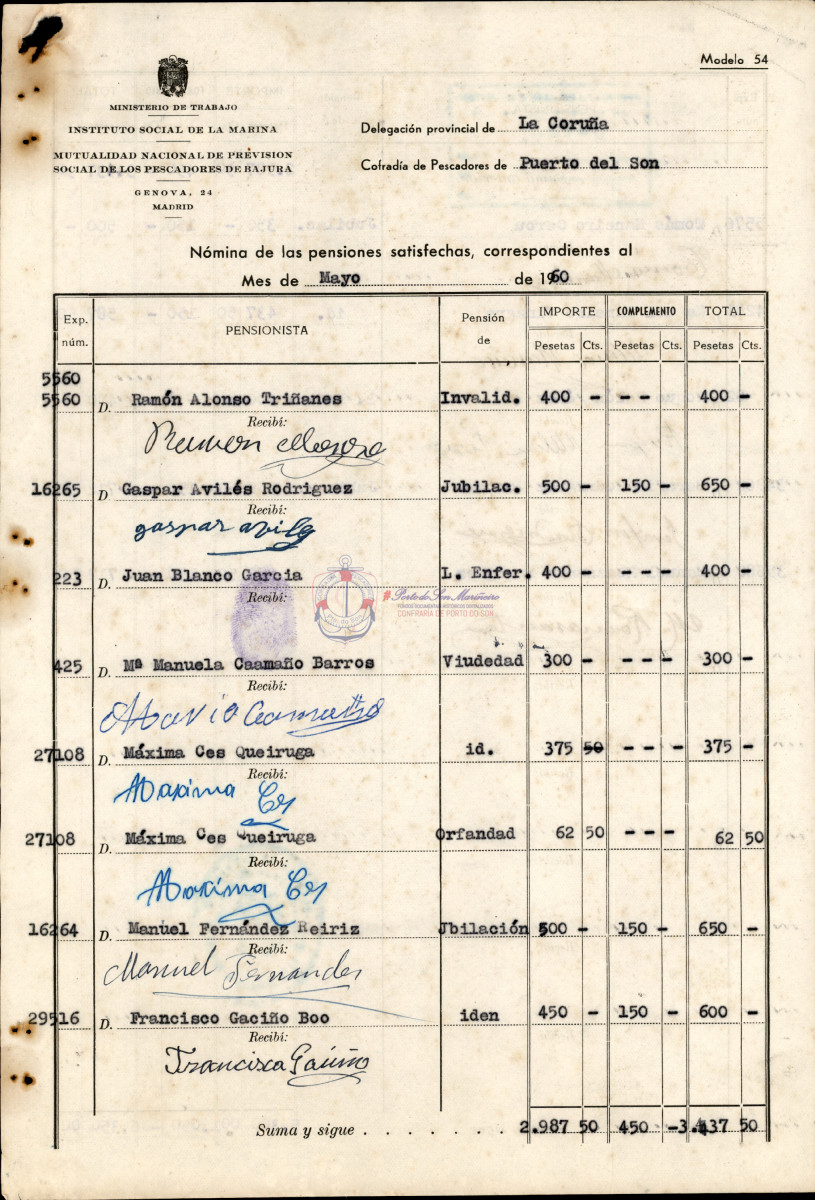 Modelo 54
MINISTERIO DE TRABAJO
INSTITUTO SOCIAL DE LA MARINA
MUTUALIDAD NACIONAL DE PREVISION
SOCIAL DE LOS PESCADORES DE BAJURA
GENOVA, 24
MADRID
Delegación provincial de La Coruña
Cofradía de Pescadores de Puerto del Son
Nómina de las pensiones satisfechas, correspondientes al
Mes de Mayo de 1960
Exp. núm. PENSIONISTA Pensión de IMPORTE COMPLEMENTO TOTAL
Pesetas Cts. Pesetas Cts. Pesetas Cts.
5560
5560 D. Ramón Alonso Triñanes Invalid. 400 - - - 400 -
Recibí:
Ramon Alonso
16265 D Gaspar Avilés Rodriguez Jubilac. 500 - 150 - 650 -
Recibí:
gaspar avile
223 D. Juan Blanco Garcia L. Enfer. 400 - - - - 400 -
Recibí:
#Porto do Son Mariñeiro
CONFRARÍA DE PORTO DO SON
425 D. Mª Manuela Caamaño Barros Viudedad 300 - - - - 300 -
Recibí:
Maria Caamaño
27108 D. Máxima Ces Queiruga id. 375 50 - - - 375 -
Recibí:
Maxima Ces
27108 D. Máxima Ces Queiruga Orfandad 62 50 - - - 62 50
Recibí:
Maxima Ces
16264 D. Manuel Fernández Reiriz Jbilación 500 - 150 - 650 -
Recibí:
Manuel Fernandes
29516 D. Francisco Gaciño Boo iden 450 - 150 - 600 -
Recibí:
Francisca Gaciño
Suma y sigue . . . . . . . 2.987 50 450 - 3.437 50